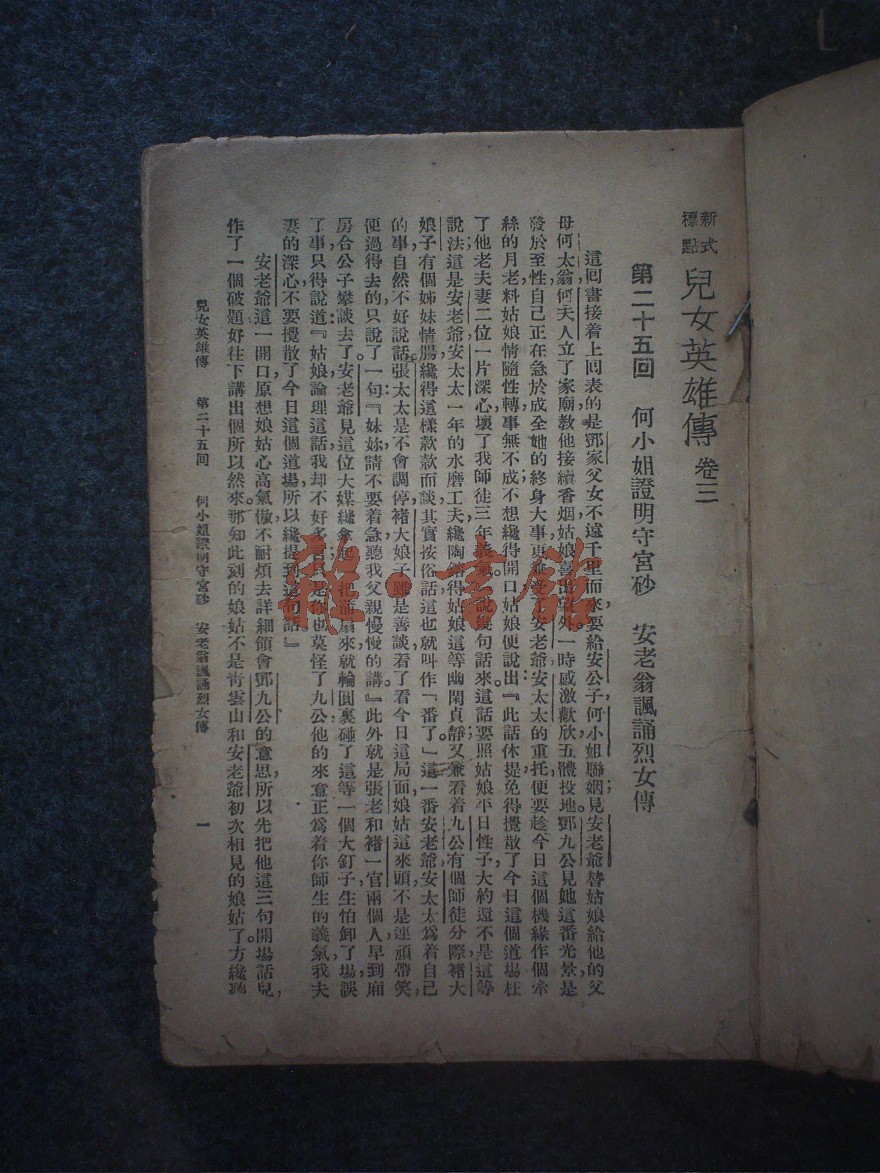 新式標點 兒女英雄傳 卷三
第二十五回 何小姐證明守宮砂 安老翁諷誦烈女傳
這回書接着上回表的是鄧家父女不遠千里而來要給安公子何小姐聯姻見安老爺替姑娘給他的父
母何太翁何夫人立了家廟教他接續香烟姑娘喜出望外一時感激歡欣五體投地鄧九公見她這番光景是
發於至性自己正在急於成全她的終身大事更兼受了安老爺安太太的重托便要趁今日這個機緣作個牽
絲的月老料姑娘情隨性轉事無不成不想纔得開口姑娘便說出『此話休提免得攪散了今日這個道場枉
了他老夫妻二位一片深心壞了我師徒三年義氣』說幾句話來這話要照姑娘平日性子大約還不是這等
說法這是安老爺安太太一年的水磨工夫纔陶鎔得姑娘這等幽閑貞靜又兼看着九公有個師徒分際褚大
娘子有個姊妹情腸纔得這樣款款而談其實按俗話這也就叫作「番了」這一番安老爺安太太為着自己
的事自然不好說話張太太是不會調停褚大娘子雖是善談看了看今日這局面娘姑這來頭不是連頑帶笑
便過得去的只說了一句『妹妳請不要着急聽我父親慢慢的講』此外就是張老和褚一官兩個人早到廂
房合公子攀談去了安老爺見這位大媒纔拿起一把蒲扇來就輪圓裏碰了這等一個大釘子生怕卸了場誤
了事只得說道『姑娘論理這話我却不好多言只是你也莫怪了九公他的來意正為着你師生的義氣我夫
妻的深心不要攪散了今日這個道場所以纔提到這句話』
安老爺這一開口原想娘姑心高氣傲不耐煩去詳細領會鄧九公的意思所以先把他這三句開場話兒
作了一個破題好往下講出個所以然來那知此刻的娘姑不是青雲山和安老爺初次相見的娘姑了方纔聽
兒女英雄傳 第二十五回 何小姐證明守宮砂 安老翁諷誦烈女傳 一
雜·書館